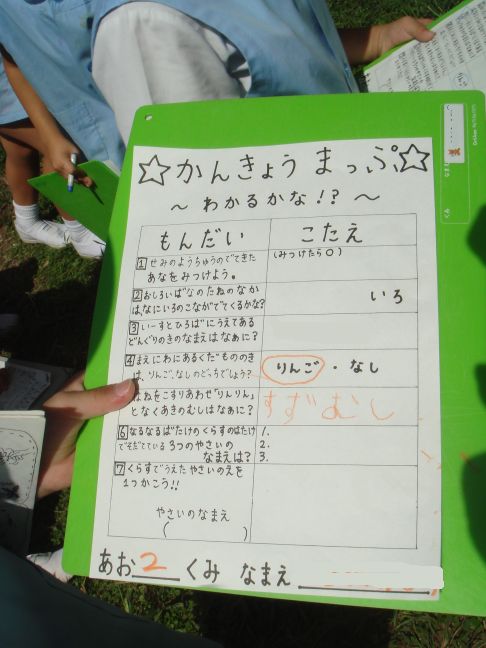 ☆かんきょう まっぷ☆
～ わかるかな!? ～
もんだい
こたえ
1 せみのようちゅうのでてきた
あなをみつけよう。
(みつけたら○)
2 おしろいばなのたねのなか
は、なにいろのこながでてくるかな?
いろ
3 いーすとひろばにうえてある
どんぐりのきのなまえはなぁに?
4 まえにわにあるくだもののき
は、りんご、なしのどっちでしょう?
りんご ・ なし
はねをこすりあわせ「りんりん」
となくあきのむしはなぁに?
すずむし
6 なるなるばたけのくらすのはたけ
でそだてている 3つのやさいの
なまえは?
1.
2.
3.
7 くらすでうえた やさいのえを
1つかこう!!
やさいのなまえ
( )
あお 2 くみ なまえ